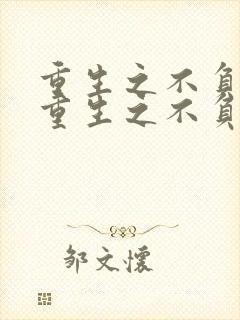 重生之不負
重生之不負
邹文懷